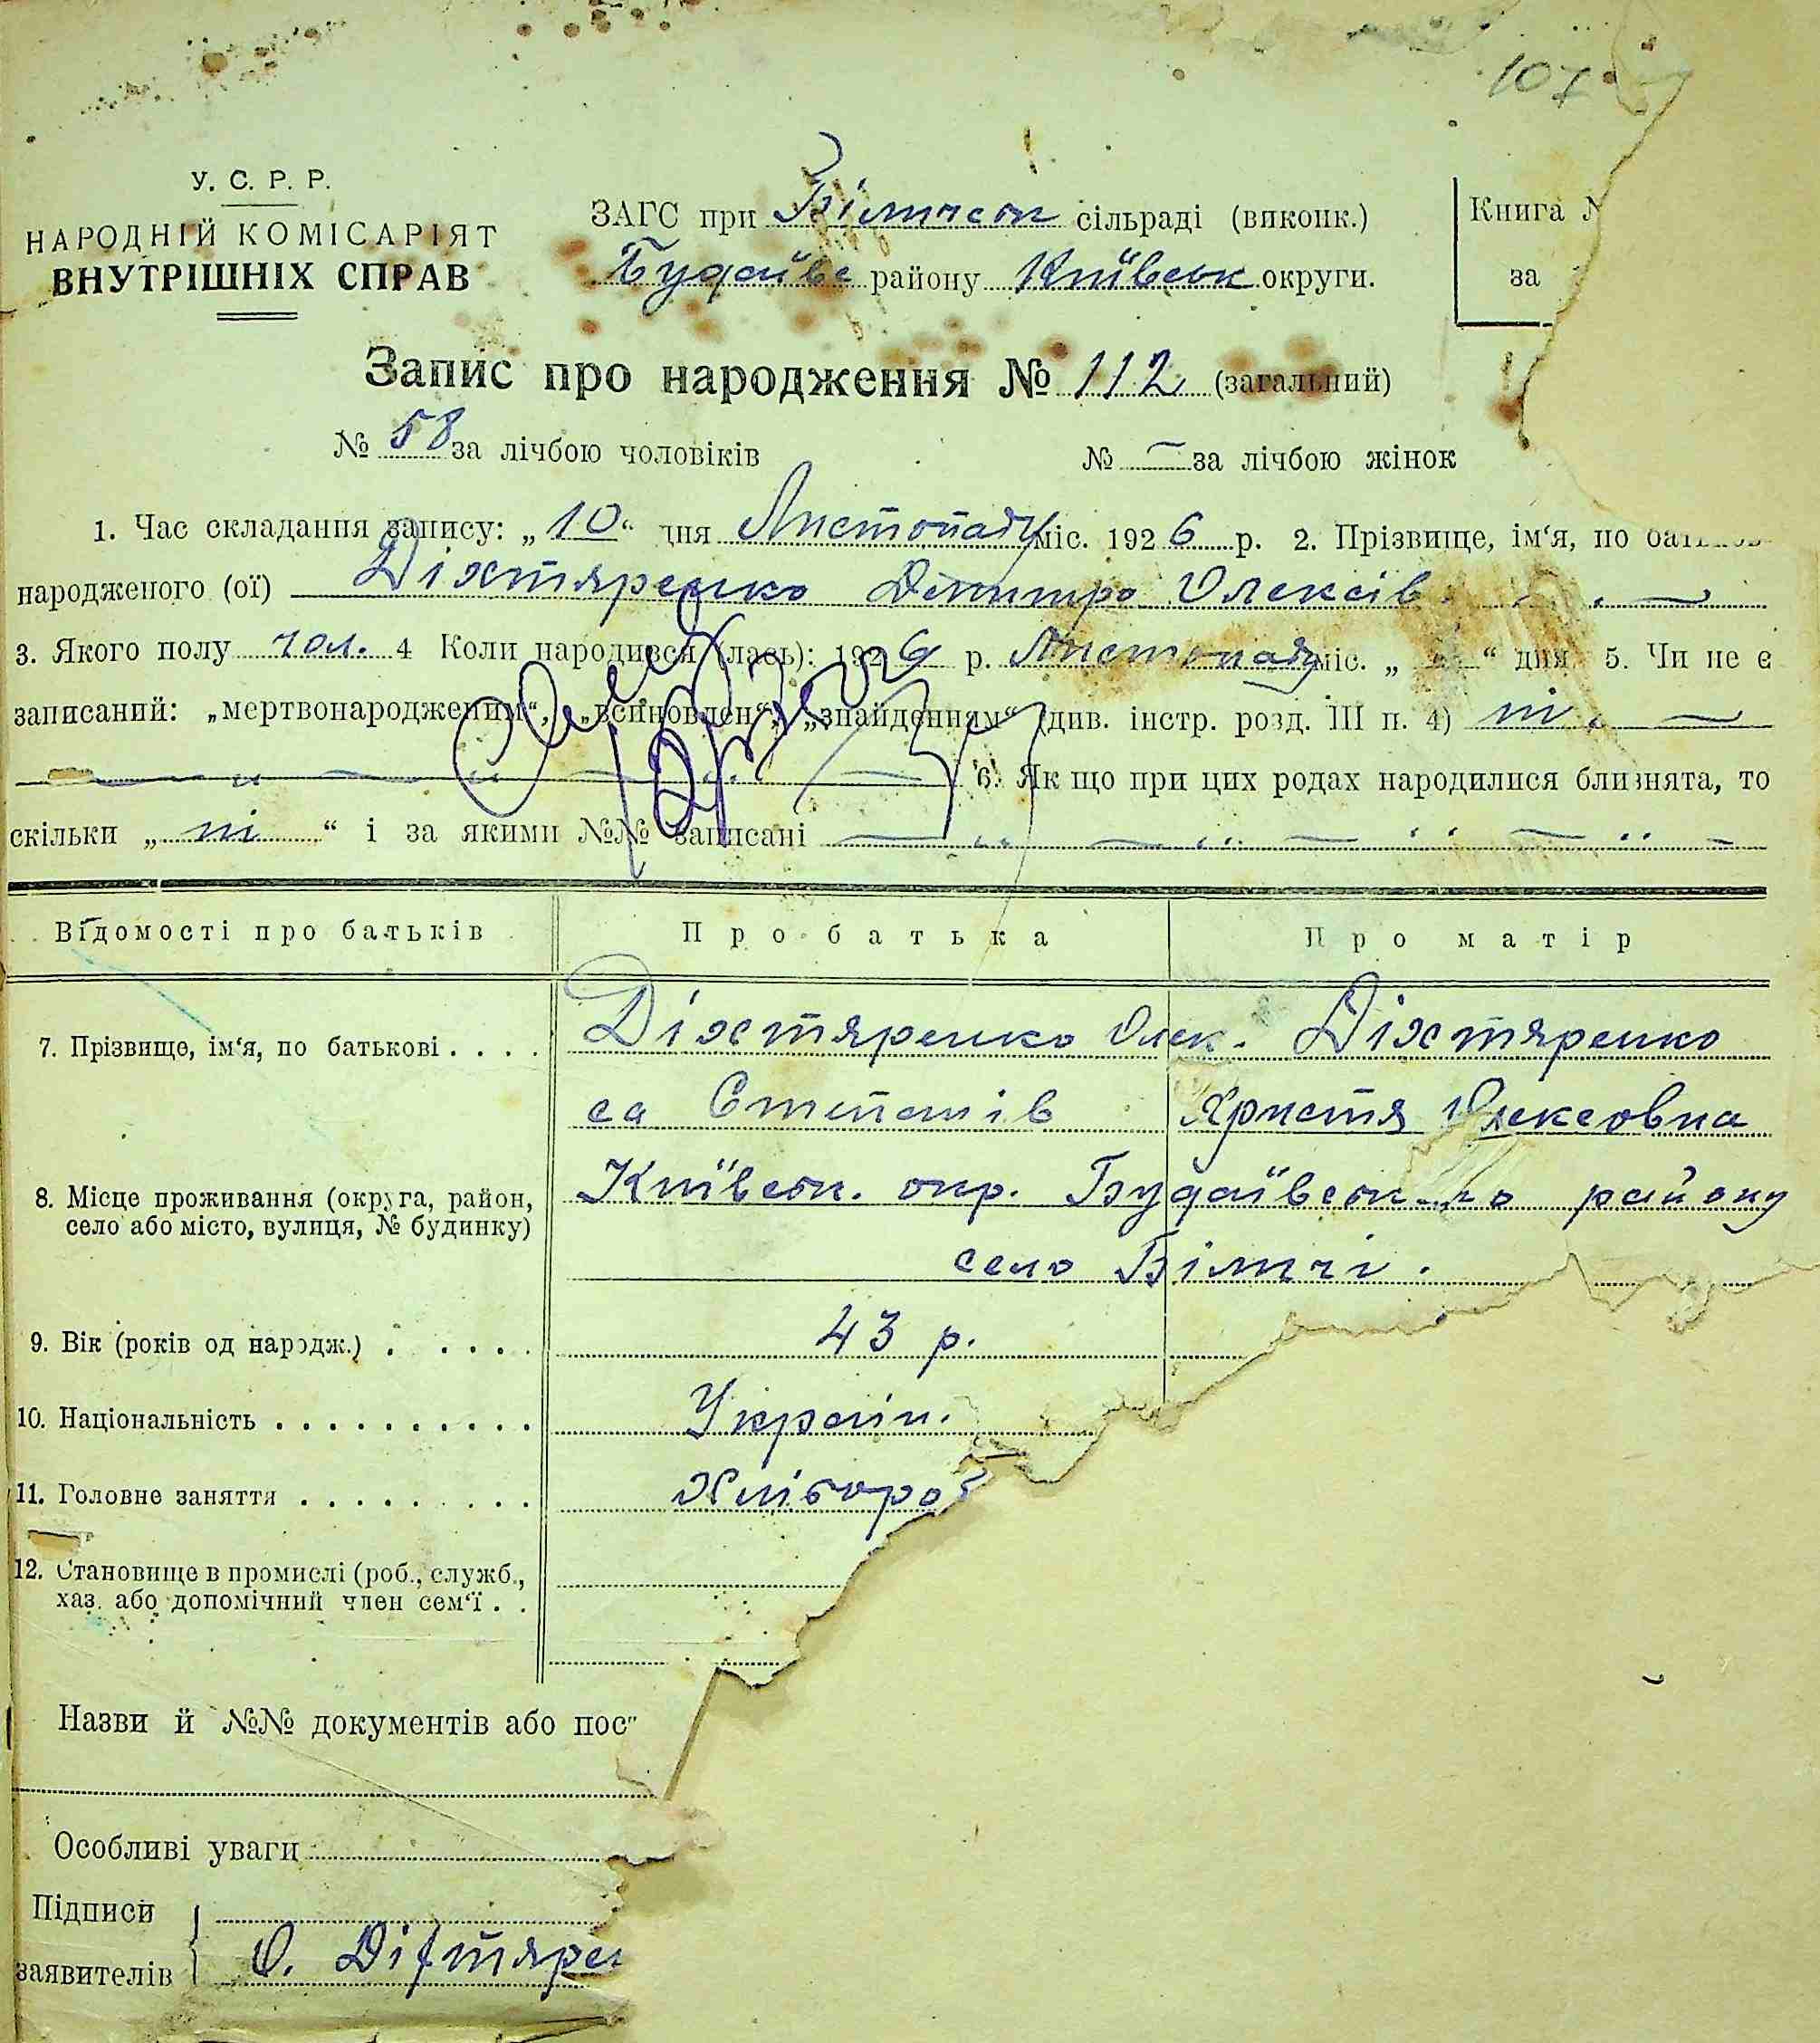 107
У. С. Р. Р.
НАРОДНІЙ КОМІСАРІЯТ
ВНУТРІШНІХ СПРАВ
ЗАГС при Білическ сільраді (виконк.)
Будаївс району Київськ округи.
Книга №
за
Запис про народження № 112 (загальний)
№ 58 за лічбою чоловіків № — за лічбою жінок
1. Час складання запису: „10“ дня Листопаду міс. 1926 р. 2. Прізвище, ім‘я, по
народженого (ої) Діхтяренко Дмитро Олексів. —
3. Якого полу чол. 4 Коли народився (лась): 1926 р. Листопаду міс. „ “ дня 5. Чи не є
записаний: „мертвонародженим“, „всиновлен“, „знайденням“ (див. інстр. розд. III п. 4) ні. —
6. Як що при цих родах народилися близнята, то
скільки „ ні “ і за якими №№ записані —
Відомості про батьків Про батька Про матір
7. Прізвище, ім‘я, по батькові . . . . Діхтяренко Олек. Діхтяренко
са Степанів Христя Олексовна
8. Місце проживання (округа, район, Київськ. окр. Будаївськ-го району
село або місто, вулиця, № будинку)
село Біличі.
9. Вік (років од народж.) . . . . . 43 р.
10. Національність . . . . . . . . . . Україн.
11. Головне заняття . . . . . . . . . Хлібороб
12. Становище в промислі (роб., служб.,
хаз. або допомічний член сем‘ї . .
Назви й №№ документів або пос
Особливі уваги
Підписи
заявителів О. Діхтярен